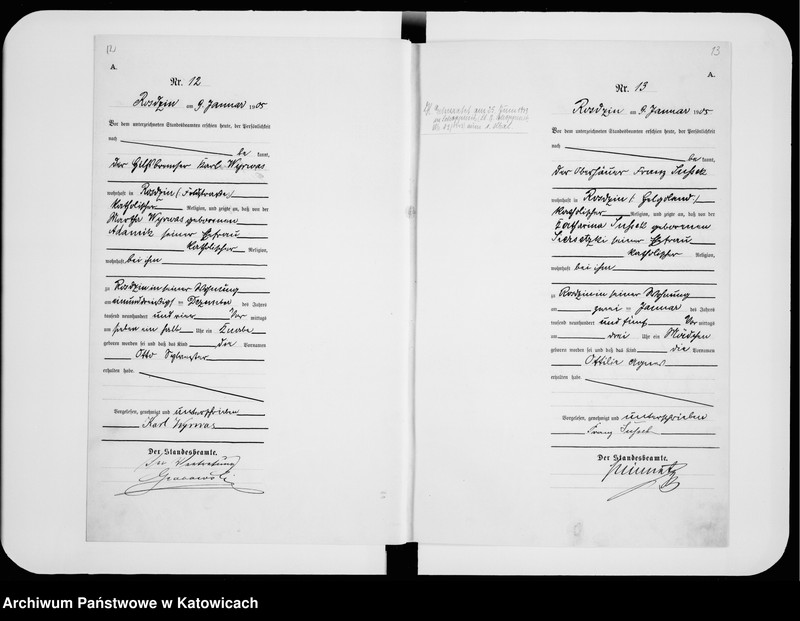 12
A.
Nr. 12
Rosdzin am 9. Januar 1905
Vor dem unterzeichneten Standesbeamten erschien heute, der Persönlichkeit
nach
be kannt,
der Karl Wyrwas
wohnhaft in Rosdzin
katholischer Religion, und zeigte an, daß von der
Martha Wyrwas geborenen
Adamik seiner Ehefrau
katholischer Religion,
wohnhaft bei ihm
zu Rosdzin in seiner Wohnung
am einunddreißigsten Dezember des Jahres
tausend neunhundert und vier Vor mittags
um halb Uhr ein Knabe
geboren worden sei und daß das Kind die Vornamen
Otto Sylvester
erhalten habe.
Vorgelesen, genehmigt und unterschrieben
Karl Wyrwas
Der Standesbeamte.
In Vertretung
13
A.
Nr. 13
Rosdzin am 9. Januar 1905
Vor dem unterzeichneten Standesbeamten erschien heute, der Persönlichkeit
nach
be kannt,
der Oberhäuer Franz
wohnhaft in Rosdzin / Helgoland /
katholischer Religion, und zeigte an, daß von der
Katharina geborenen
seiner Ehefrau
katholischer Religion,
wohnhaft bei ihm
zu Rosdzin in seiner Wohnung
am zwei Januar des Jahres
tausend neunhundert und fünf Vor mittags
um drei Uhr ein Mädchen
geboren worden sei und daß das Kind die Vornamen
Ottilie Agnes
erhalten habe.
Vorgelesen, genehmigt und unterschrieben
Franz
Der Standesbeamte.
Archiwum Państwowe w Katowicach